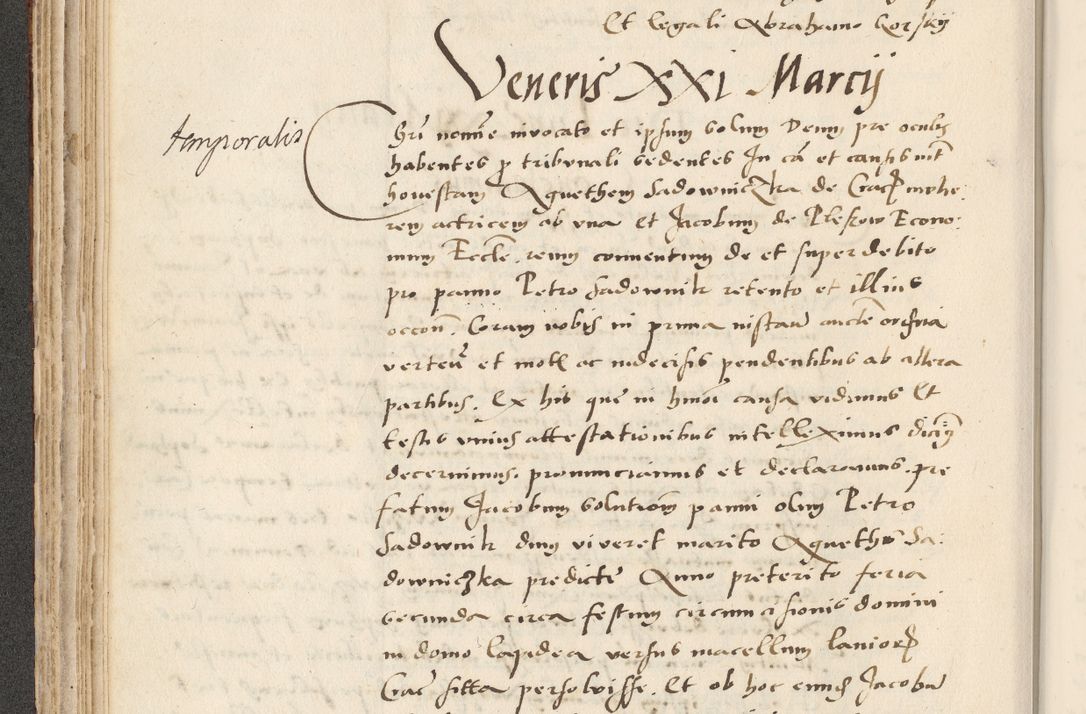 Et legali Abrahamo Gorsky
Veneris XXI Marcij
temporalis
Chri nomie invocato et ipsum solum Deum pre oculis
habentes p tribunali sedentes In ca et causis int
honestam Agnethem Sadowniczka de Crac mulie
rem actricem ab una Et Jacobum de Pleskow Econo:
mum Eccle. reum conventum de et super debito
pro panno Petro Sadownik retento et illius
occon. Coram nobis in prima instan aucte ordria
verten et mot ac indecisis pendentibus ab altera
partibus. Ex his que in hmoi causa vidimus Et
testis unius attestationibus intelleximus dicim
decernimus. pronunciamus et declaramus. pre
fatum Jacobum solutiom panni olim Petro
Sadownik dum viveret marito Agneth Sa:
downiczka predicte Anno preterito feria
secunda circa festum circumcisionis domini
in domo lapidea versus macellum lanior
Crac sitta persolvisse. Et ob hoc eund Jacobu